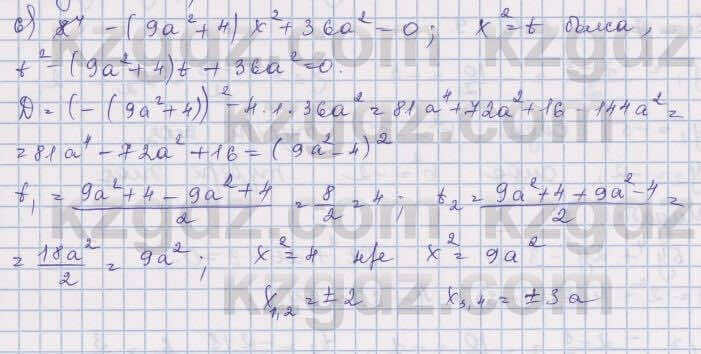 в) x⁴ - (9a² + 4) x² + 36a² = 0; x² = t болса,
t² - (9a² + 4)t + 36a² = 0.
D = (-(9a² + 4))² - 4·1·36a² = 81a⁴ + 72a² + 16 - 144a² =
= 81a⁴ - 72a² + 16 = (9a² - 4)²
t₁ = (9a² + 4 - 9a² + 4)/2 = 8/2 = 4; t₂ = (9a² + 4 + 9a² - 4)/2 =
= 18a²/2 = 9a²; x² = 4 не x² = 9a²
x₁,₂ = ±2 x₃,₄ = ±3a
kzgdz.com